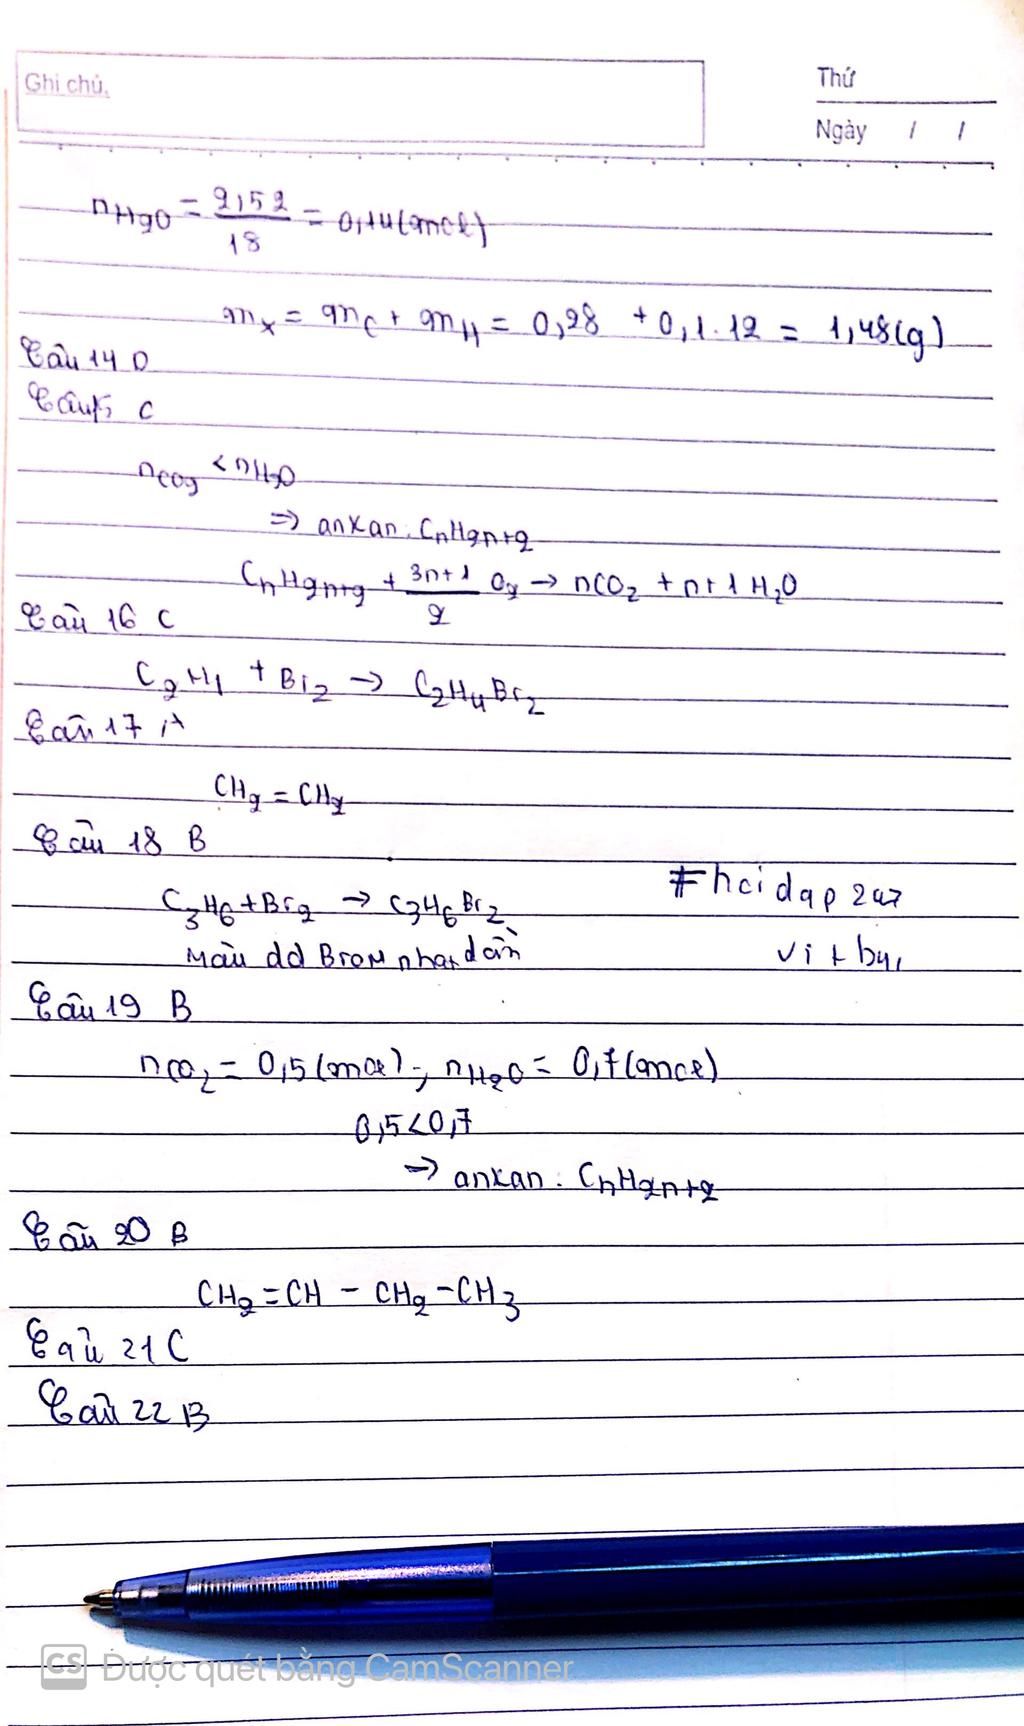 Ghi chú.
Thứ
Ngày / /
nH2O = 2,52/18 = 0,14(mol)
mx = mC + mH = 0,28 + 0,1.12 = 1,48(g)
Câu 14 D
Câu 15 C
nCO2 < nH2O
=> ankan: CnH2n+2
CnH2n+2 + 3n+1/2 O2 → nCO2 + n+1 H2O
Câu 16 C
C2H4 + Br2 → C2H4Br2
Câu 17 A
CH2 = CH2
Câu 18 B
C3H6 + Br2 → C3H6Br2
#hoidap247
Màu dd Brom nhạt dần
Câu 19 B
nCO2 = 0,5(mol); nH2O = 0,7(mol)
0,5<0,7
→ ankan: CnH2n+2
Câu 20 B
CH2=CH - CH2 - CH3
Câu 21 C
Câu 22 B
CS Được quét bằng CamScanner